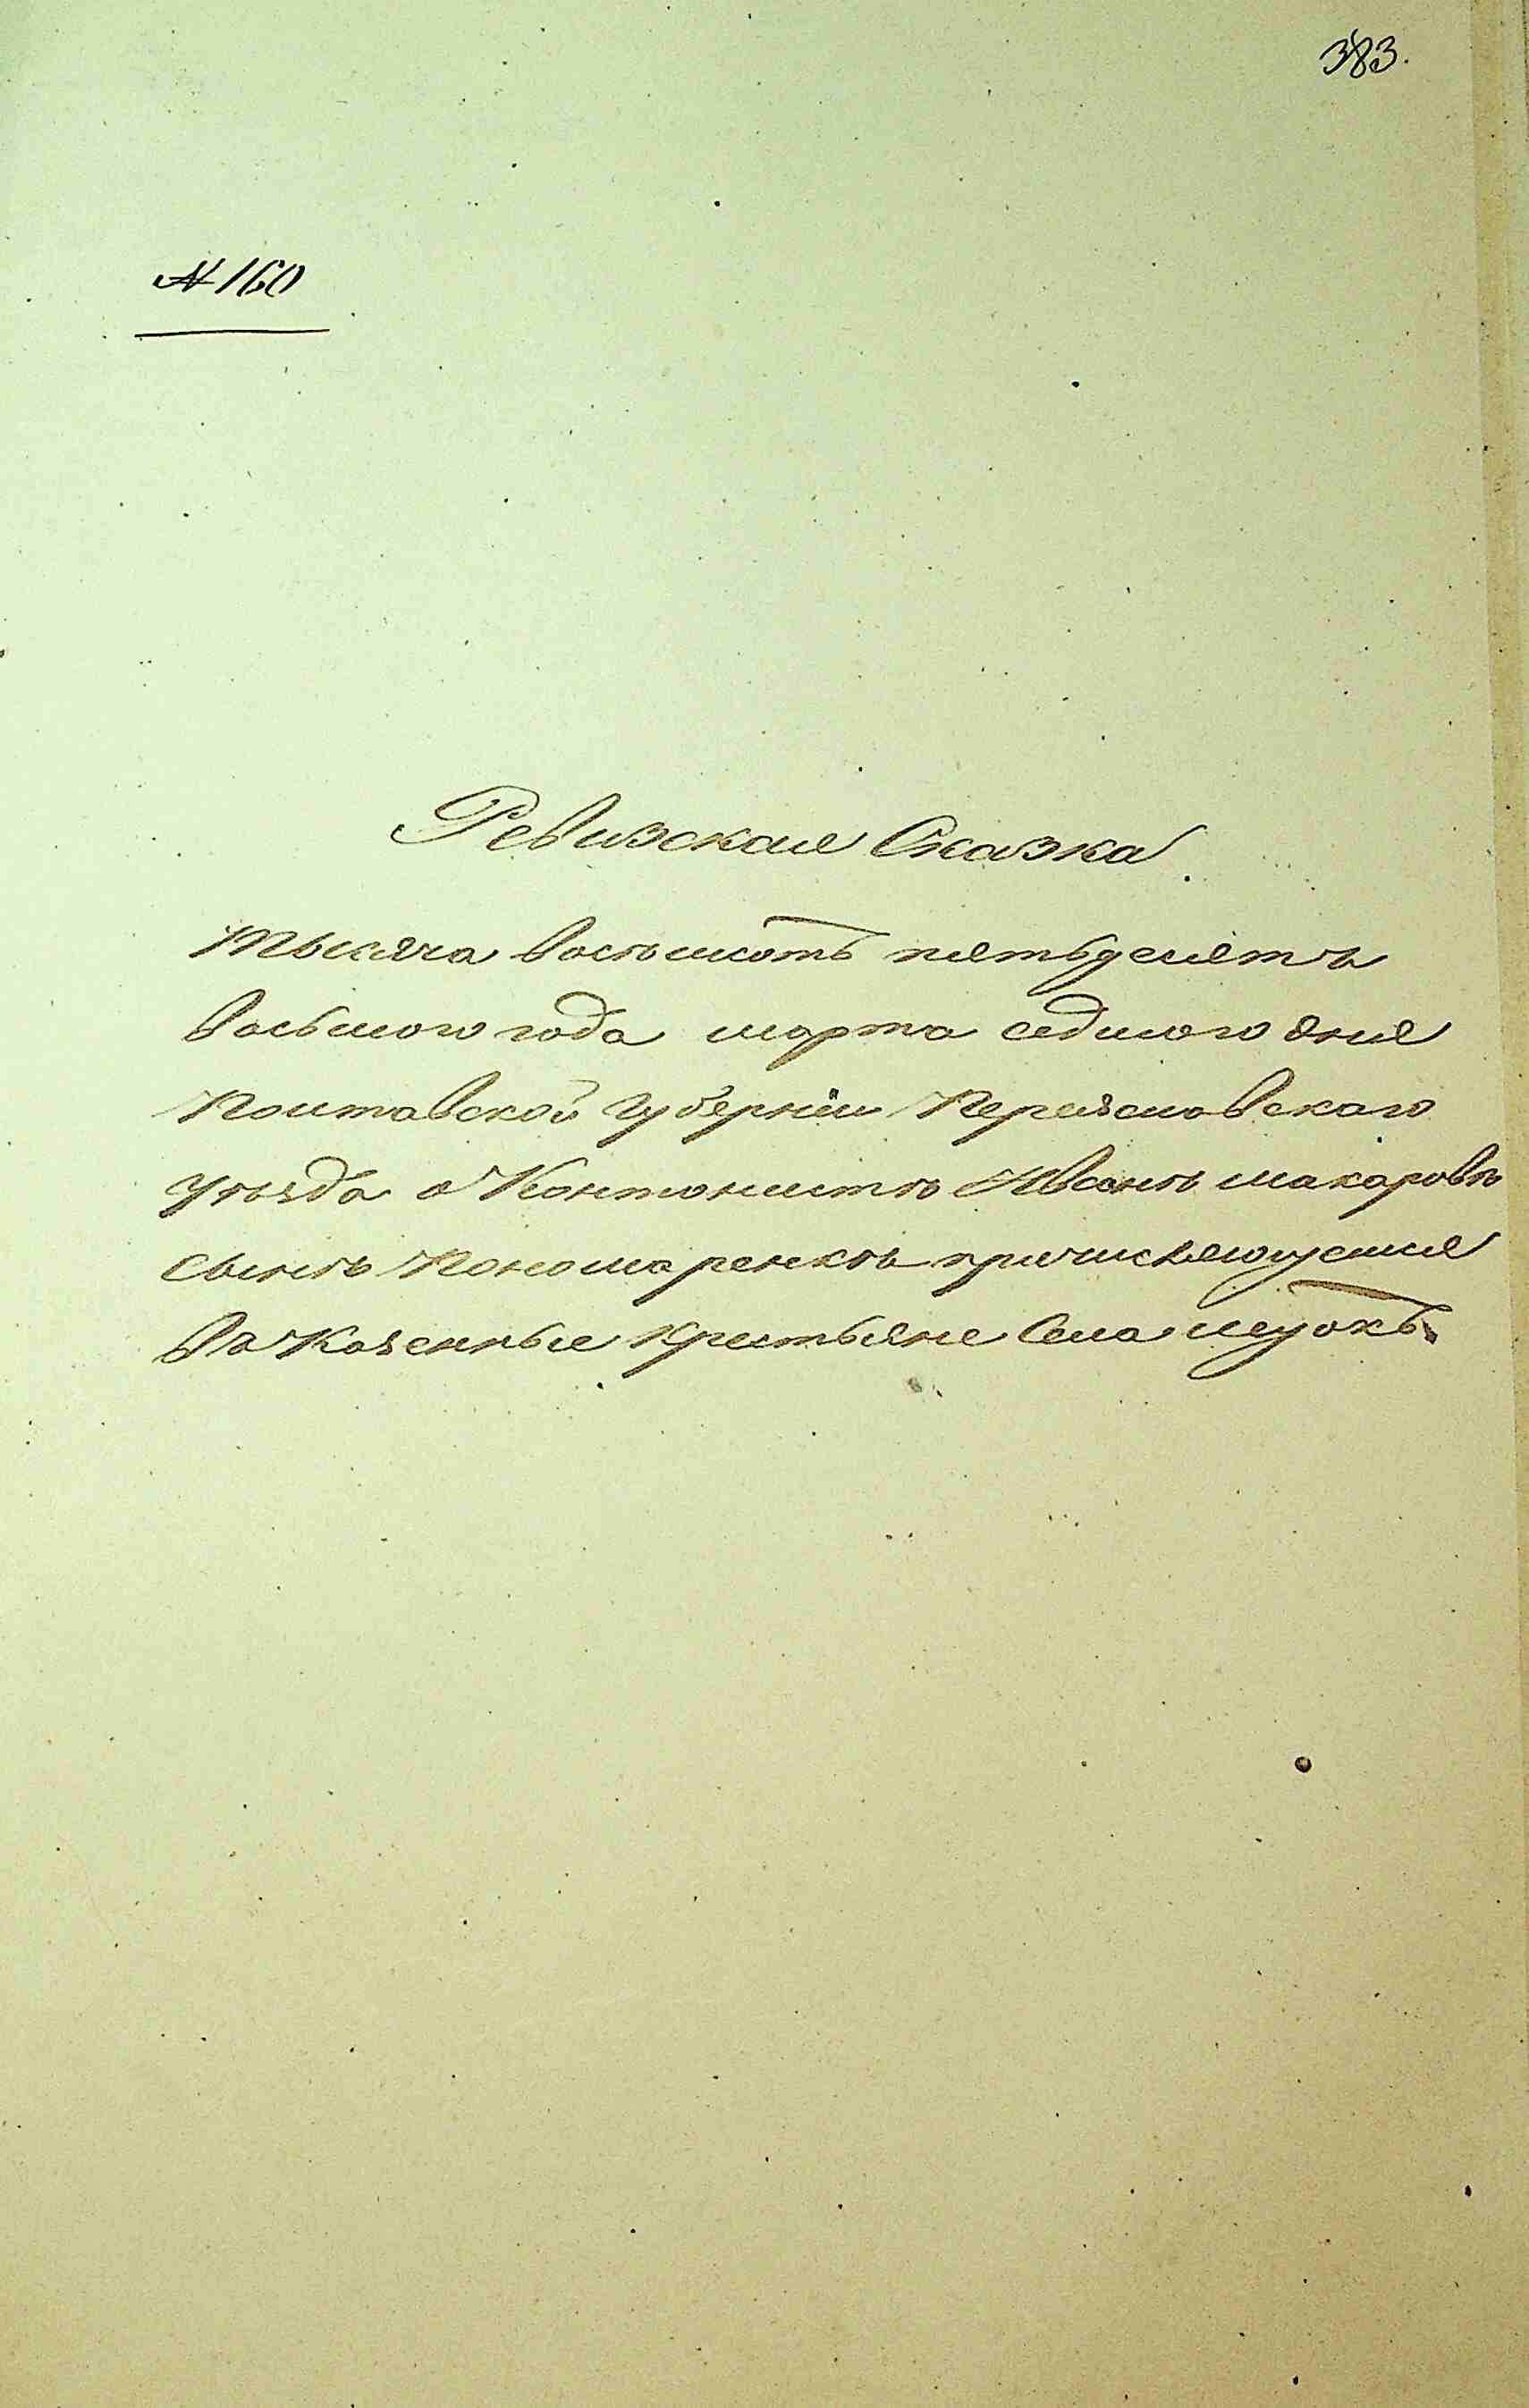 383.
№ 160
Ревизская Сказка.
Тысяча восемсотъ пятьдесятъ
восьмого года марта седмого дня
Полтавской Губерніи Переяславскаго
уѣзда о Кантонистѣ Иванѣ Макаровѣ
сынѣ Пономаренкѣ причисляющемся
въ Казенные Крестьяне Села